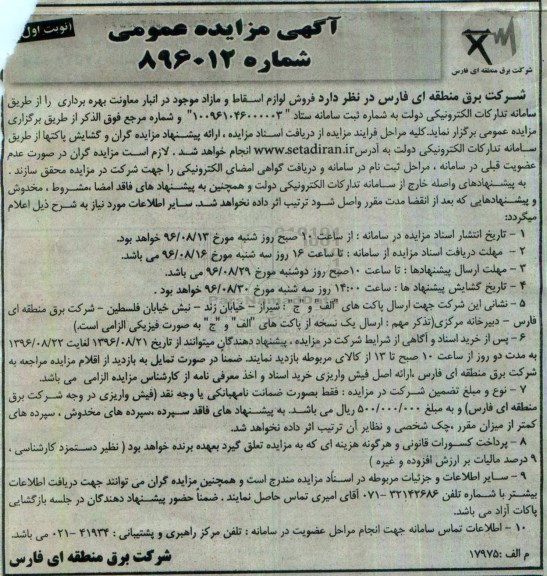 نوبت اول
آگهی مزایده عمومی
شماره ۸۹۶۰۱۲
شرکت برق منطقه ای فارس
شرکت برق منطقه ای فارس در نظر دارد فروش لوازم اسقاط و مازاد موجود در انبار معاونت بهره برداری را از طریق
سامانه تدارکات الکترونیکی دولت به شماره ثبت سامانه ستاد "۱۰۰۹۶۱۰۴۶۰۰۰۰۰۳" و شماره مرجع فوق الذکر از طریق برگزاری
مزایده عمومی برگزار نماید.کلیه مراحل فرایند مزایده از دریافت اسناد مزایده ، ارائه پیشنهاد مزایده گران و گشایش پاکتها از طریق
سامانه تدارکات الکترونیکی دولت به آدرس www.setadiran.ir انجام خواهد شد . لازم است مزایده گران در صورت عدم
عضویت قبلی در سامانه ، مراحل ثبت نام در سامانه و دریافت گواهی امضای الکترونیکی را جهت شرکت در مزایده محقق سازند .
به پیشنهادهای واصله خارج از سامانه تدارکات الکترونیکی دولت و همچنین به پیشنهاد های فاقد امضا ،مشروط ، مخدوش
و پیشنهادهایی که بعد از انقضا مدت مقرر واصل شود ترتیب اثر داده نخواهد شد. سایر اطلاعات مورد نیاز به شرح ذیل اعلام
میگردد:
۱ - تاریخ انتشار اسناد مزایده در سامانه : از ساعت ۱۰ صبح روز شنبه مورخ ۹۶/۰۸/۱۳ خواهد بود.
۲ - مهلت دریافت اسناد مزایده از سامانه : تا ساعت ۱۶ روز سه شنبه مورخ ۹۶/۰۸/۱۶ می باشد.
۳ - مهلت ارسال پیشنهادها : تا ساعت ۱۰صبح روز دوشنبه مورخ ۹۶/۰۸/۲۹ می باشد.
۴ - تاریخ گشایش پیشنهاد ها : ساعت ۱۴:۰۰ روز سه شنبه مورخ ۹۶/۰۸/۳۰ خواهد بود .
۵ - نشانی این شرکت جهت ارسال پاکت های "الف و ج" : شیراز - خیابان زند - نبش خیابان فلسطین - شرکت برق منطقه ای
فارس - دبیرخانه مرکزی(تذکر مهم : ارسال یک نسخه از پاکت های "الف" و "ج" به صورت فیزیکی الزامی است.)
۶ - پس از خرید اسناد و آگاهی از شرایط شرکت در مزایده ، پیشنهاد دهندگان میتوانند از تاریخ ۱۳۹۶/۰۸/۲۱ لغایت ۱۳۹۶/۰۸/۲۲
به مدت دو روز از ساعت ۱۰ صبح تا ۱۳ از کالای مربوطه بازدید نمایند. ضمناً در صورت تمایل به بازدید از اقلام مزایده مراجعه به
شرکت برق منطقه ای فارس ،ارائه اصل فیش واریزی خرید اسناد و اخذ معرفی نامه از کارشناس مزایده الزامی می باشد.
۷ - نوع و مبلغ تضمین شرکت در مزایده : فقط بصورت ضمانت نامهبانکی یا وجه نقد (فیش واریزی در وجه شرکت برق
منطقه ای فارس) و به مبلغ ۵۰۰/۰۰۰/۰۰۰ ریال می باشد. به پیشنهاد های فاقد سپرده ،سپرده های مخدوش ، سپرده های
کمتر از میزان مقرر ،چک شخصی و نظایر آن ترتیب اثر داده نخواهد شد.
۸ - پرداخت کسورات قانونی و هرگونه هزینه ای که به مزایده تعلق گیرد بعهده برنده خواهد بود ( نظیر دستمزد کارشناسی ،
۹ درصد مالیات بر ارزش افزوده و غیره )
۹ - سایر اطلاعات و جزئیات مربوطه در اسناد مزایده مندرج است و همچنین مزایده گران می توانند جهت دریافت اطلاعات
بیشتر با شماره تلفن ۳۲۱۴۲۶۸۶ -۰۷۱ آقای امیری تماس حاصل نمایند . ضمناً حضور پیشنهاد دهندگان در جلسه بازگشایی
پاکات آزاد می باشد.
۱۰ - اطلاعات تماس سامانه جهت انجام مراحل عضویت در سامانه : تلفن مرکز راهبری و پشتیبانی : ۴۱۹۳۴ -۰۲۱ می باشد.
م الف :۱۷۹۷۵
شرکت برق منطقه ای فارس